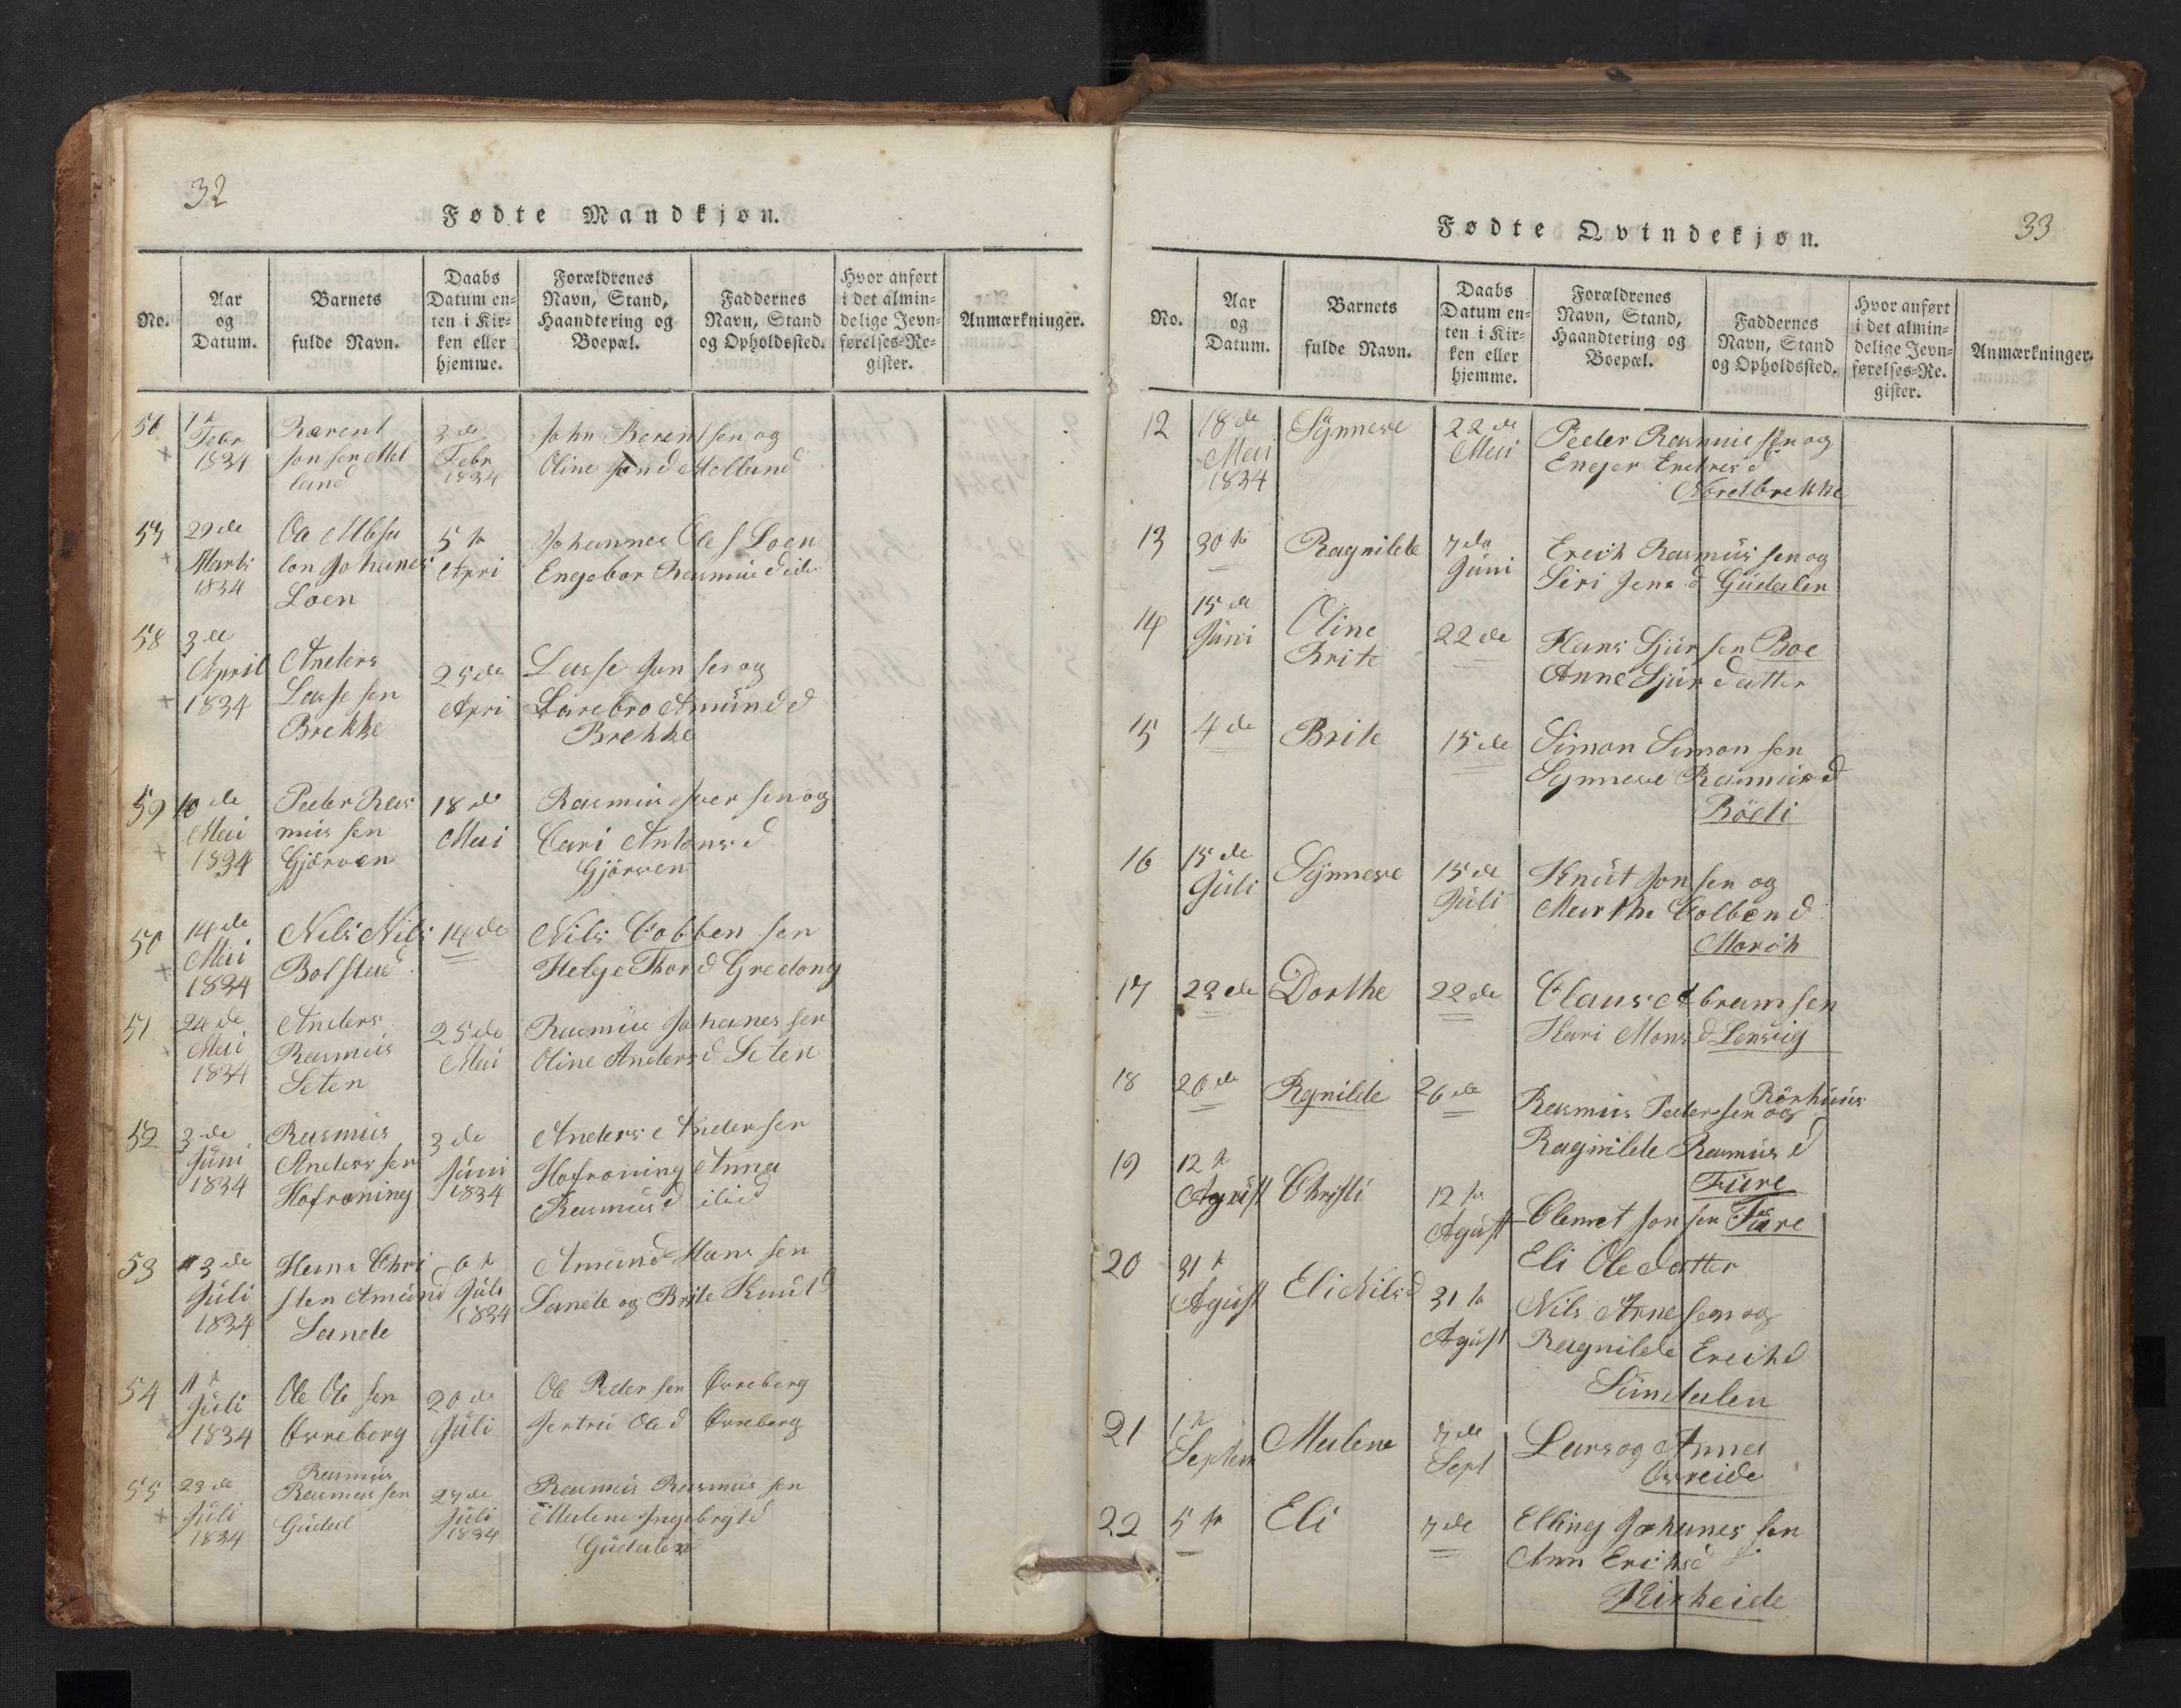 32
Fødte Mandkjøn.
No.
Aar
og
Datum.
Barnets
fulde Navn.
Daabs
Datum en=
ten i Kir=
ken eller
hjemme.
Forældrenes
Navn, Stand,
Haandtering og
Boepæl.
Faddernes
Navn, Stand
og Opholdssted.
Hvor anført
i det almin=
delige Jevn=
førelses=Re=
gister.
Anmærkninger.
56
Febr
1834
Barent
Jon sen Mel
land
3de
Febr
1834
John Berent sen og
Oline Jon d Melland
57
29de
Marts
1834
Loen
5te
Apri
Johannes Ole s Loen
Engebor Rasmus d
58
3de
April
1834
Anders
Lasse sen
Brekke
25de
Apri
Lasse Jon sen og
Amund d
Brekke
59
10de
Mai
1834
Peder Ras
mus sen
Gjörven
18de
Mai
Rasmus Iver sen og
Cari Antons d
Gjörven
50
14de
Mai
1834
Nils Nils
Bolstad
14de
Nils Cobben sen
Helge Thor d Gredong
51
24de
Mai
1834
Anders
Rasmus
Seten
25de
Mai
Rasmus Johanes sen
Oline Anders d Seten
52
3de
Juni
1834
Rasmus
Anders sen
Hofroning
3de
Juni
1834
Anders Ander sen
Hofroning Anna
Rasmus d
53
3de
Juli
1834
Hans Chri
sten Amund
Sande
6te
Juli
1834
Amund Hans sen
Sande og Brite Knut d
54
Juli
1834
Ole Ole sen
Övreberg
20de
Juli
Ole Peder sen Övreberg
Jertru Ole d Övreberg
55
23de
Juli
1834
Rasmus
Rasmus sen
Gudal
27de
Juli
1834
Rasmus Rasmus sen
Malene Ingebrigt d
Gudalen
33
Fødte Qvindekjøn.
No.
Aar
og
Datum.
Barnets
fulde Navn.
Daabs
Datum en=
ten i Kir=
ken eller
hjemme.
Forældrenes
Navn, Stand,
Haandtering og
Boepæl.
Faddernes
Navn, Stand
og Opholdssted.
Hvor anført
i det almin=
delige Jevn=
førelses=Re.
gister.
Anmærkninger.
12
18de
Mai
1834
Synneve
22de
Mai
Peder Rasmus sen og
Enger d
Nordbrekke
13
30te
Ragnilde
7de
Juni
Erich Rasmus sen og
Siri Jens d Gudalen
14
15de
Juni
Oline
Brite
22de
Hans Sjur sen Boe
Anne Sjur datter
15
4de
Brite
15de
Simon Simon sen
Synneve Rasmus d
Röeli
16
15de
Juli
Synneve
15de
Juli
Knut Jon sen og
Marthe Colben d
Morch
17
22de
Dorthe
22de
Claus Abram sen
Kari Mons d Lenvig
18
20de
Rgnilde
26de
Rasmus Peder sen og Rörhuus
Ragnilde Rasmus d
Füre
19
12te
Agust
Christi
12te
Agust
Clemet Jon sen Füre
Eli Ole datter
20
31te
Agust
Eli Nils d
31te
Agust
Nils Arne sen og
Ragnilde Erich d
Sundalen
21
1te
Septem
Malene
7de
Sept
Lars og Anna
Osreide
22
5te
Eli
7de
Elling Johanes sen
Ann Erichs d
Kirkeide